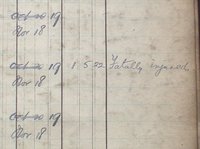 Oct 20 19
Nov 18
Oct 20 19 1 5 22 Fatally injured.
Nov 18
Oct 20 19
Nov 18